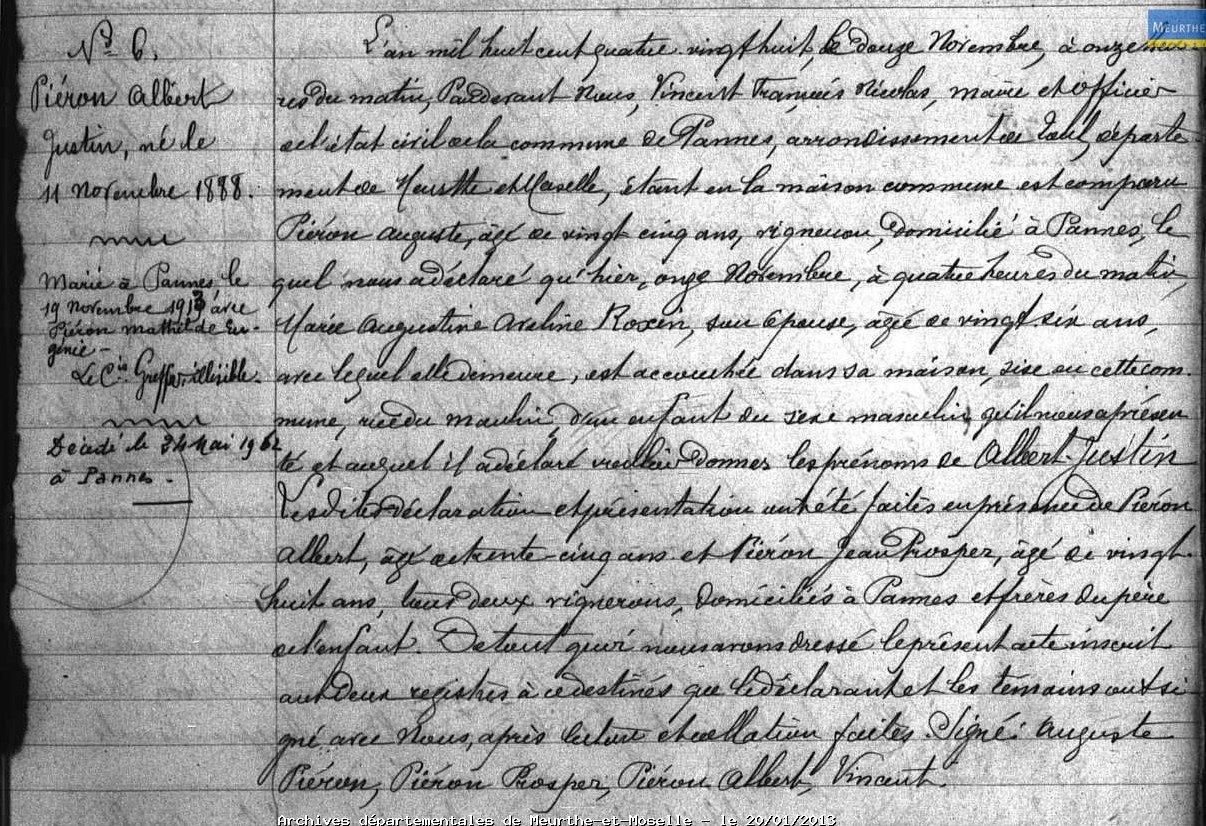 N° 6.
Piéron Albert
Justin, né le
11 Novembre 1888.
Marié à Pannes le
19 Novembre 1913 avec
Piéron Mathilde Eu-
génie -
Le C.is Greffier, illisible.
Décédé le Mai 1962
à Pannes.
L'an mil huit cent quatre-vingt huit, le douze Novembre, à onze heu-
res du matin, Pardevant Nous, Vincent François Nicolas, maire et officier
de l'état civil de la commune de Pannes, arrondissement de Toul, départe-
ment de Meurthe et Moselle, étant en la maison commune est comparu
Piéron Auguste, âgé de vingt-cinq ans, vigneron, domicilié à Pannes, le
quel nous a déclaré qu'hier, onze Novembre, à quatre heures du matin,
Marie Augustine Aveline Roxin, son épouse, âgée de vingt six ans,
avec lequel elle demeure, est accouchée dans sa maison, sise en cette com-
mune, rue du moulin, d'un enfant du sexe masculin, qu'il nous a présen
té et auquel il a déclaré vouloir donner les prénoms de Albert-Justin
Lesdites déclaration et présentation ont été faites en présence de Piéron
Albert, âgé de trente-cinq ans et Piéron Jean Prosper, âgé de vingt-
huit ans, tous deux vignerons, domiciliés à Pannes et frères du père
de l'enfant. De tout quoi nous avons dressé le présent acte inscrit
aux deux registres à ce destinés que le déclarant et les témoins ont si-
gné avec Nous, après lecture et collation faites. Signé: Auguste
Piéron, Piéron Prosper, Piéron Albert, Vincent.
MEURTHE
Archives départementales de Meurthe-et-Moselle - le 20/01/2013